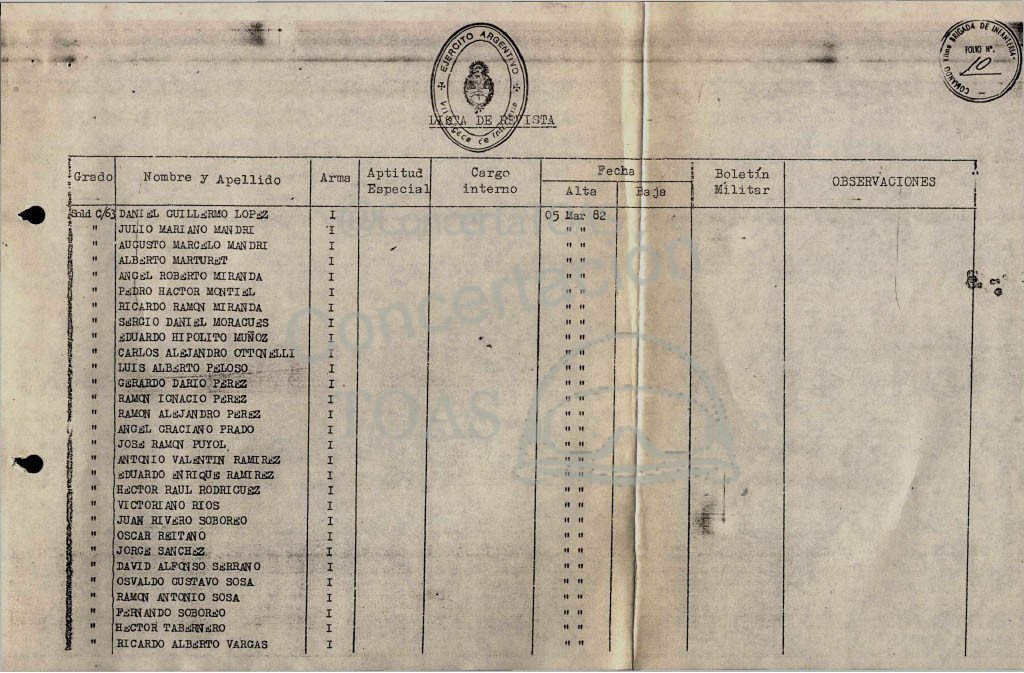 EJERCITO ARGENTINO
COMANDO
BRIGADA DE INFANTERIA
FOLIO Nº.
10
LISTA DE REVISTA
Grado Nombre y Apellido Arma Aptitud Especial Cargo interno Fecha Alta Baja Boletín Militar OBSERVACIONES
Sold C/63 DANIEL GUILLERMO LOPEZ I 05 Mar 82
" JULIO MARIANO MANDRI I " "
" AUGUSTO MARCELO MANDRI I " "
" ALBERTO MARTURET I " "
" ANGEL ROBERTO MIRANDA I " "
" PEDRO HACTOR MONTIEL I " "
" RICARDO RAMON MIRANDA I " "
" SERGIO DANIEL MORAGUES I " "
" EDUARDO HIPOLITO MUÑOZ I " "
" CARLOS ALEJANDRO OTTONELLI I " "
" LUIS ALBERTO PELOSO I " "
" GERARDO DARIO PEREZ I " "
" RAMON IGNACIO PEREZ I " "
" RAMON ALEJANDRO PEREZ I " "
" ANGEL GRACIANO PRADO I " "
" JOSE RAMON PUYOL I " "
" ANTONIO VALENTIN RAMIREZ I " "
" EDUARDO ENRIQUE RAMIREZ I " "
" HECTOR RAUL RODRIGUEZ I " "
" VICTORIANO RIOS I " "
" JUAN RIVERO SOBOREO I " "
" OSCAR REITANO I " "
" JORGE SANCHEZ I " "
" DAVID ALFONSO SERRANO I " "
" OSVALDO GUSTAVO SOSA I " "
" RAMON ANTONIO SOSA I " "
" FERNANDO SOBOREO I " "
" HECTOR TABERNERO I " "
" RICARDO ALBERTO VARGAS I " "
@ConcertaTOAS
Concertación
TOAS